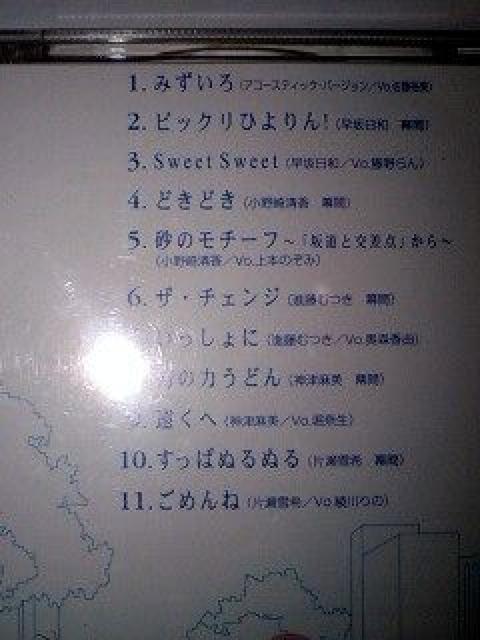 1. みずいろ (アコースティック・バージョン/Vo.佐藤裕美)
2. ビックリひよりん! (早坂日和 幕間)
3. Sweet Sweet (早坂日和/Vo.勝野らん)
4. どきどき (小野崎清香 幕間)
5. 砂のモチーフ〜「坂道と交差点」から〜
(小野崎清香/Vo.上本のぞみ)
6. ザ・チェンジ (進藤むつき 幕間)
いっしょに (進藤むつき/Vo.
の力うどん (神津麻美 幕間)
遠くへ (神津麻美/Vo.
10. すっぱぬるぬる (片瀬雪希 幕間)
11. ごめんね (片瀬雪希/Vo.綾川りの)